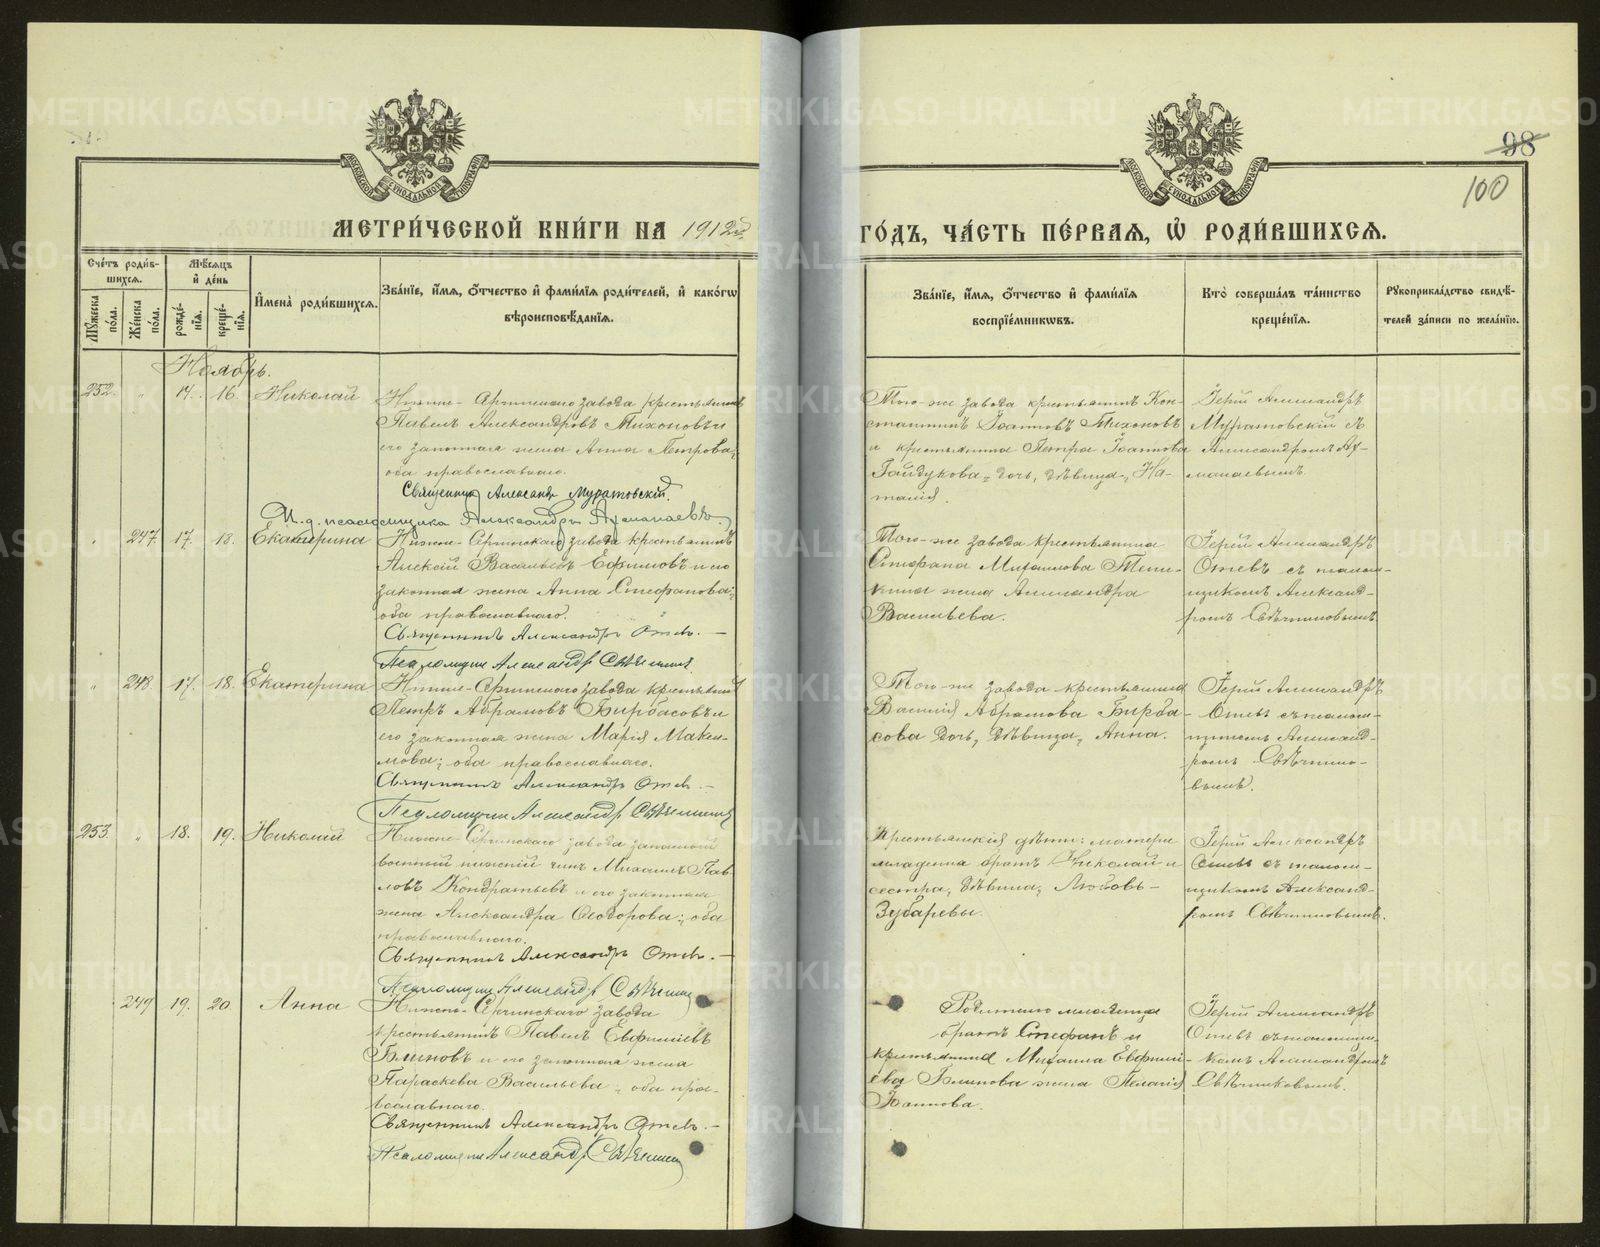 98
100
МОСКОВСКОЙ СѴНОДАЛЬНОЙ ТИПОГРАФІИ
МОСКОВСКОЙ СѴНОДАЛЬНОЙ ТИПОГРАФІИ
МЕТРИ́ЧЕСКОЙ КНИ́ГИ НА 1912й
ГО́ДЪ, ЧА́СТЬ ПЕ́РВАѦ, Ѽ РОДИ́ВШИХСѦ.
Сче́тъ роди́в-
шихсѧ.
Мѣ́сѧцъ
и҆ де́нь
Мꙋ́жеска
по́ла.
Же́нска
по́ла.
рожде́-
нїѧ.
креще́-
нїѧ.
И҆мена̀ роди́вшихсѧ.
Зва́нїе, и҆́мѧ, ѻ҆́тчество и҆ фами́лїѧ роди́телей, и҆ како́гѡ
вѣроисповѣ́данїѧ.
Зва́нїе, и҆́мѧ, ѻ҆́тчество и҆ фами́лїѧ
воспрїе́мникѡвъ.
Кто̀ соверша́лъ та́инство
креще́нїѧ.
Рꙋкоприкла́дство свидѣ́-
телей за́писи по жела́нїю.
Ноябрь.
252. " 14. 16. Николай
Нижне-Сергинскаго завода крестьянинъ
Павелъ Александровъ Тихоновъ и
его законная жена Анна Петрова;
оба православнаго.
Священникъ Александр Муратовскій.
И. д. псаломщика Александръ Ахманаевъ.
Того-же завода крестьянинъ Кон-
стантинъ Іоанновъ Тихоновъ
и крестьянина Петра Іоаннова
Гайдукова дочь, дѣвица, На-
талія.
Іерей Александръ
Муратовскій
Александромъ Ах-
манаевымъ
" 247. 17. 18. Екатерина
Нижне-Сергинскаго завода крестьянинъ
Алексій Васильевъ Ефимовъ и его
законная жена Анна Стефанова;
оба православнаго.
Священникъ Александръ Отев.
Псаломщик Александр Свѣчник
Того-же завода крестьянина
Стефана Михаилова
жена Александра
Васильева.
Іерей Александръ
Отевъ съ псалом-
щикомъ Александ-
ромъ Свѣчниковымъ.
" 248. 17. 18. Екатерина
Нижне-Сергинскаго завода крестьянинъ
Петръ Абрамовъ Бирбасовъ и
его законная жена Марія Макси-
мова; оба православнаго.
Священникъ Александръ Отев.
Псаломщик Александр Свѣчник
Того-же завода крестьянина
Василія Абрамова Бирба-
сова дочь, дѣвица, Анна.
Іерей Александръ
Отевъ съ псалом-
щикомъ Александ-
ромъ Свѣчнико-
вымъ.
253. " 18. 19. Николай
Нижне-Сергинскаго завода запасный
военный нижній чинъ Михаилъ Пав-
ловъ Кондратьевъ и его законная
жена Александра Ѳеодорова; оба
православнаго.
Священникъ Александръ Отев.
Псаломщик Александр Свѣчник
Крестьянскія дѣти: матери
младенца братъ Николай и
сестра, дѣвица, Любовь
Зубаревы.
Іерей Александръ
Отевъ съ псалом-
щикомъ Александ-
ромъ Свѣчниковымъ.
249 19. 20. Анна
Нижне-Сергинскаго завода
крестьянинъ Павелъ Евфиміевъ
Блиновъ и его законная жена
Параскева Васильева; оба пра-
вославнаго.
Священникъ Александръ Отев.
Псаломщик Александр Свѣчник
младенца
братъ Стефанъ и
крестьянина Михаила Евфимі-
ева Блинова жена Пелагія
Іоаннова.
Іерей Александръ
Отевъ съ псаломщи-
комъ Александромъ
Свѣчниковымъ.
METRIKI.GASO-URAL.RU